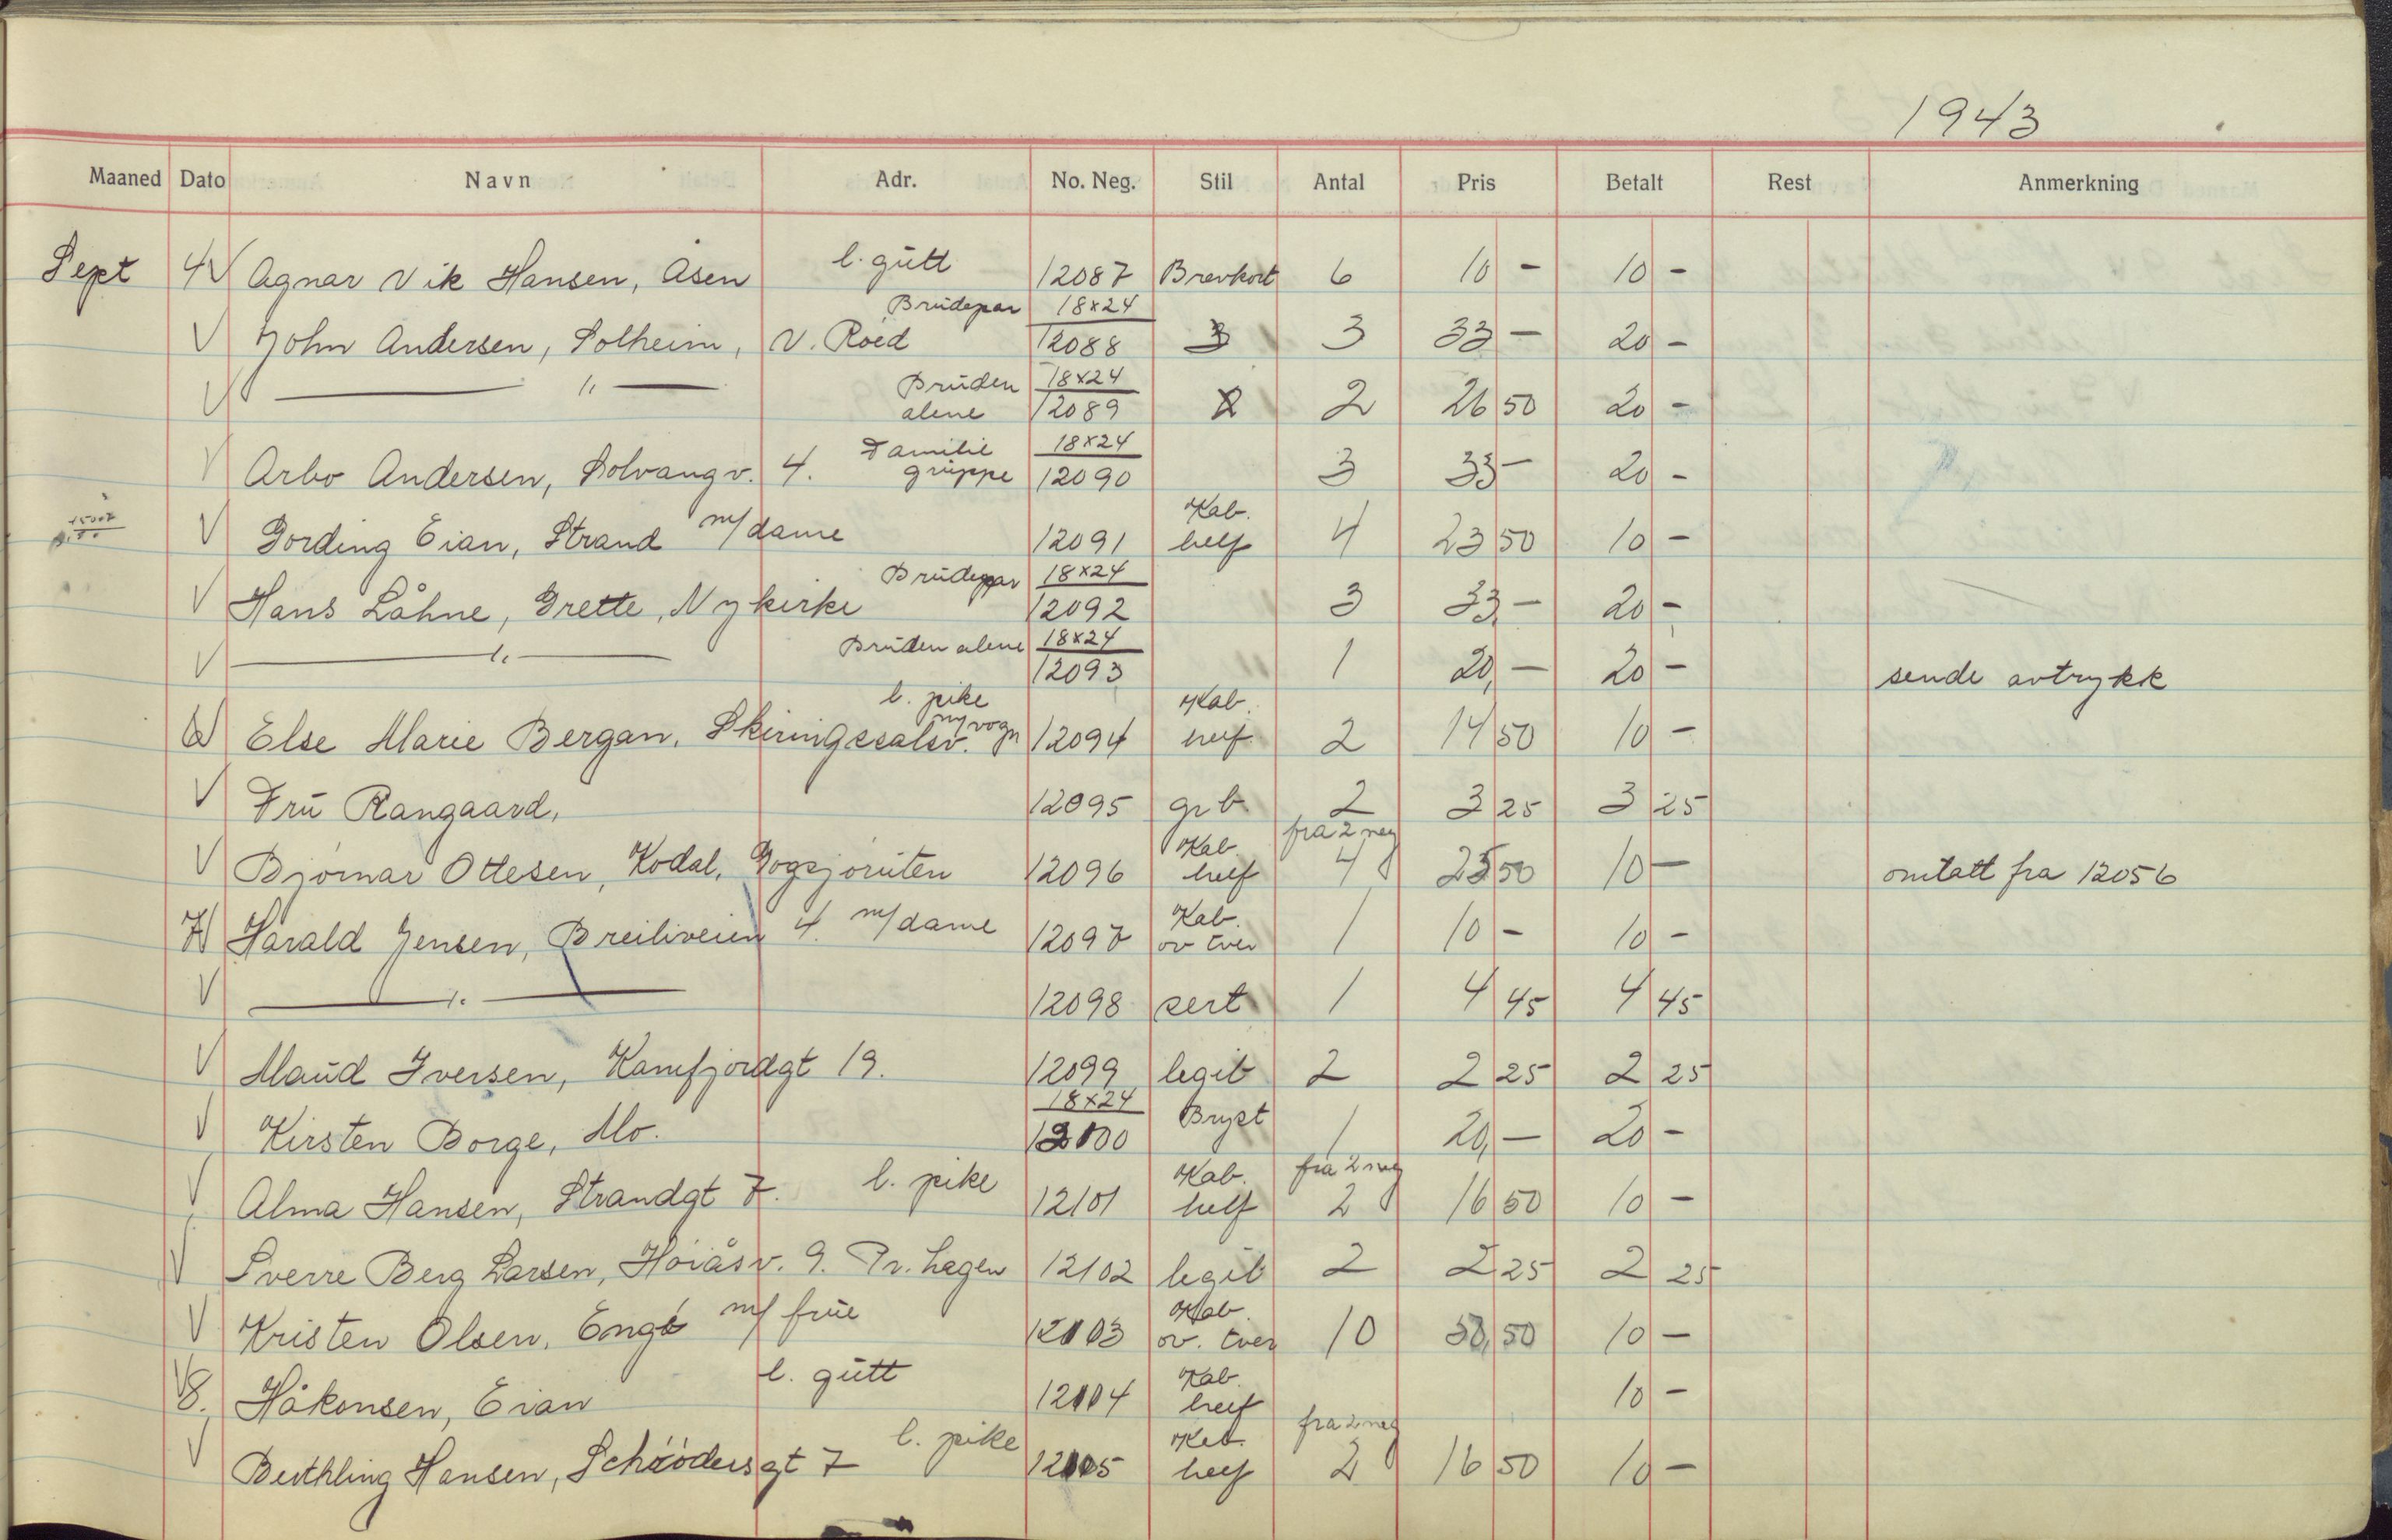 1943
Maaned Dato Navn Adr. No. Neg. Stil Antal Pris Betalt Rest Anmerkning
Sept 4 V Agnar Vik Hansen, Åsen l. gutt 12087 Brevkort 6 10 - 10 -
Brudepar 18x24
V John Andersen, Solheim, V. Roed 12088 3 3 33 - 20 -
Bruden 18x24
V —— " —— alene 12089 2 2 26 50 20 -
Familie 18x24
V Arbo Andersen, Solvangv. 4. gruppe 12090 3 33 - 20 -
Kab.
V Gording Eian, Strand m/dame 12091 helf 4 23 50 10 -
Brudepar 18x24
V Hans Låhne, Grette, Nykirke 12092 3 33,- 20 -
Bruden alene 18x24
V —— " —— 12093 1 20,- 20 - sende avtrykk
l. pike Kab.
6 V Else Marie Bergan, Skiringssalsv. m/vogn 12094 helf 2 14 50 10 -
V Fru Rangaard, 12095 gr b 2 3 25 3 25
Kab fra 2 neg
V Bjornar Ottesen, Kodal, Gogsjoruten 12096 helf 4 23 50 10 - omtatt fra 12056
Kab.
7 V Harald Jensen, Breiliveien 4. m/dame 12097 ov tver 1 10 - 10 -
V —— " —— 12098 sert 1 4 45 4 45
V Maud Iversen, Kamfjordgt 19. 12099 legit 2 2 25 2 25
18x24
V Kirsten Borge, Mo. 12100 Bryst 1 20,- 20 -
l. pike Kab. fra 2 neg
V Alma Hansen, Strandgt 7. 12101 helf 2 16 50 10 -
V Sverre Berg Larsen, Hoiåsv. 9. Pr. Hagen 12102 legit 2 2 25 2 25
Kab.
V Kristen Olsen, Engo m/ frue 12103 ov. tver 10 50 10 -
l. gutt Kab.
V 8. Håkonsen, Eian 12104 helf 10 -
l. pike Kab. fra 2 neg
V Berthling Hansen, Schröders gt 7 12105 helf 2 16 50 10 -